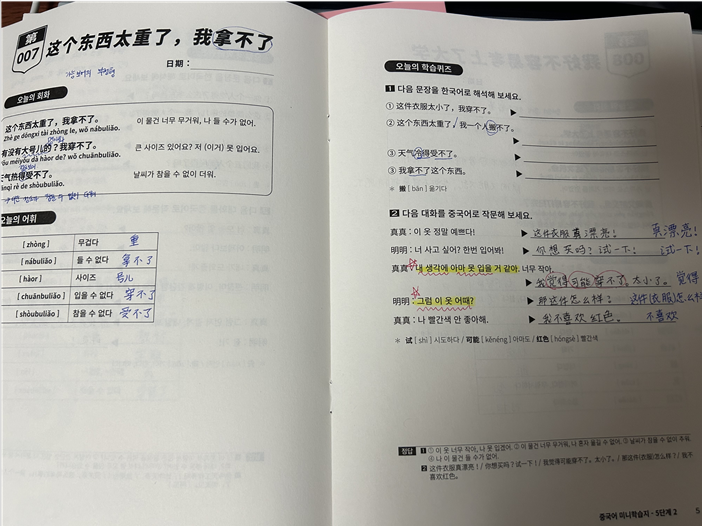 第
007
这个东西太重了，我拿不了
日期：
가능보어의 부정형
오늘의 회화
这个东西太重了，我拿不了。
이 물건 너무 무거워, 나 들 수가 없어.
Zhè ge dōngxi tài zhòng le, wǒ nábuliǎo.
有没有大号儿的？我穿不了。
큰 사이즈 있어요? 저 (이거) 못 입어요.
ǒu méiyǒu dà hàor de? wǒ chuānbuliǎo.
天气热得受不了。
날씨가 참을 수 없이 더워.
iānqì rè de shòubuliǎo.
오늘의 어휘
[ zhòng ] 무겁다 重
[ nábuliǎo ] 들 수 없다 拿不了
[ hàor ] 사이즈 号儿
[ chuānbuliǎo ] 입을 수 없다 穿不了
[ shòubuliǎo ] 참을 수 없다 受不了
오늘의 학습퀴즈
1 다음 문장을 한국어로 해석해 보세요.
① 这件衣服太小了，我穿不了。
② 这个东西太重了，我一个人搬不了。
③ 天气冷得受不了。
③ 我拿不了这个东西。
* 搬 [ bān ] 옮기다
2 다음 대화를 중국어로 작문해 보세요.
真真 : 이 옷 정말 예쁘다! ▶ 这件衣服真漂亮! 真漂亮!
明明 : 너 사고 싶어? 한번 입어봐! ▶ 你想买吗? 试一下! 试一下!
真真 : 내 생각에 아마 못 입을 거 같아. 너무 작아.
▶ 我觉得可能穿不了。太小了。 觉得
明明 : 그럼 이 옷 어때? ▶ 那这件怎么样? 这件(衣服)怎么样
真真 : 나 빨간색 안 좋아해. ▶ 我不喜欢红色。 不喜欢
* 试 [ shì ] 시도하다 / 可能 [ kěnéng ] 아마도 / 红色 [ hóngsè ] 빨간색
정답 1 ① 이 옷 너무 작아, 나 못 입겠어. ② 이 물건 너무 무거워, 나 혼자 옮길 수 없어. ③ 날씨가 참을 수 없이 추워.
④ 나 이 물건 들 수가 없어.
2 这件衣服真漂亮! / 你想买吗? 试一下! / 我觉得可能穿不了。太小了。/ 那这件(衣服)怎么样? / 我不
喜欢红色。
중국어 미니학습지 - 5단계 2
5